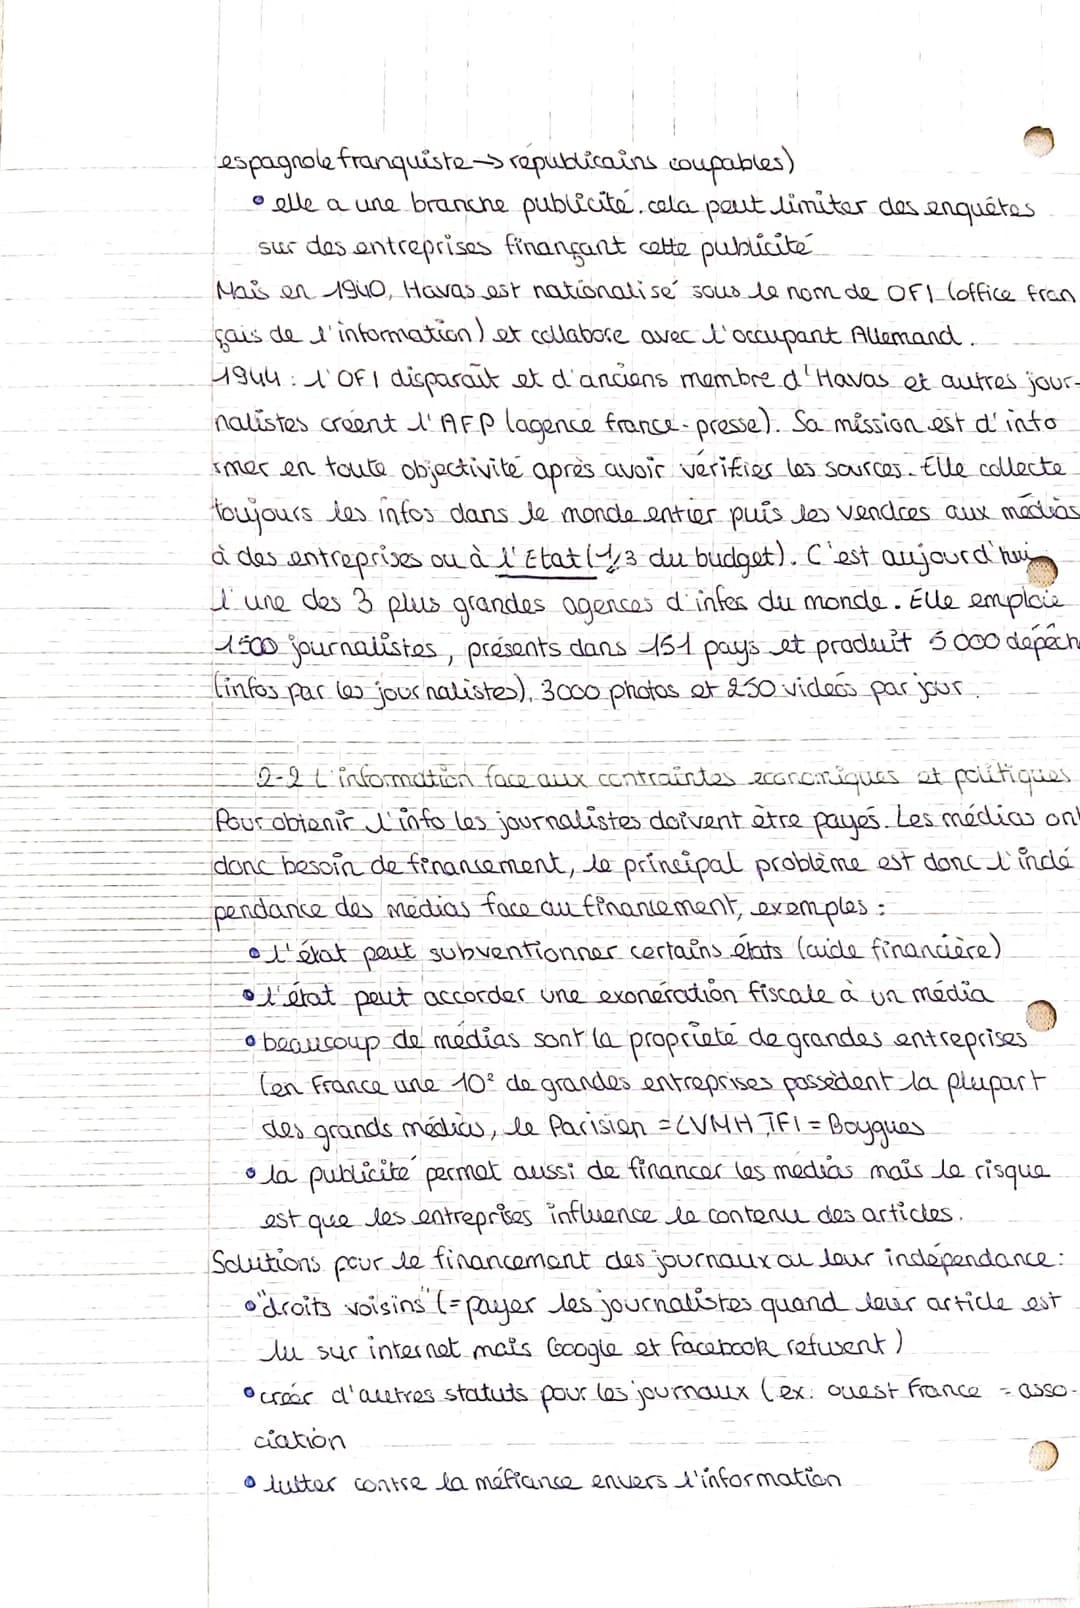 espagnole franquiste → républicains coupables)
• elle a une branche publicité. cela peut limiter des enquêtes
sur des entreprises finançant cette publicité
Mais en 1940, Havas est nationalisé sous le nom de OFI (office fran
çais de l'information) et collabore avec l'occupant Allemand.
1944 : l'OFI disparaît et d'anciens membre d'Havas et autres jour-
nalistes créent l'AFP (agence france-presse). Sa mission est d'info
rmer en toute objectivité après avoir vérifier les sources. Elle collecte
toujours les infos dans le monde entier puis les vendres aux médias
à des entreprises ou à l'Etat (1/3 du budget). C'est aujourd'hui
l'une des 3 plus grandes agences d'infos du monde. Elle emploie
1500 journalistes, présents dans 151 pays et produit 5 000 dépêch
(infos par les journalistes), 3000 photos et 250 videos par jour.
2-2 L'information face aux contraintes économiques et politiques
Pour obtenir l'info les journalistes doivent être payés. Les médias ont
donc besoin de financement, le principal problème est donc l'indé
pendance des médias face au financement, exemples :
• l'état peut subventionner certains états (aide financière)
• l'état peut accorder une exonération fiscale à un média
• beaucoup de médias sont la propriété de grandes entreprises
(en France une 10e de grandes entreprises possèdent la plupart
des grands médias, le Parisien = LVMH, TF1 = Bouygues
• la publicité permet aussi de financer les médias mais le risque
est que les entreprises influence le contenu des articles.
Solutions pour le financement des journaux ou leur indépendance :
• "droits voisins" (= payer les journalistes quand leur article est
lu sur internet mais Google et Facebook refusent)
• créer d'autres statuts pour les journaux (ex: ouest France = asso-
ciation
• lutter contre la méfiance envers l'information